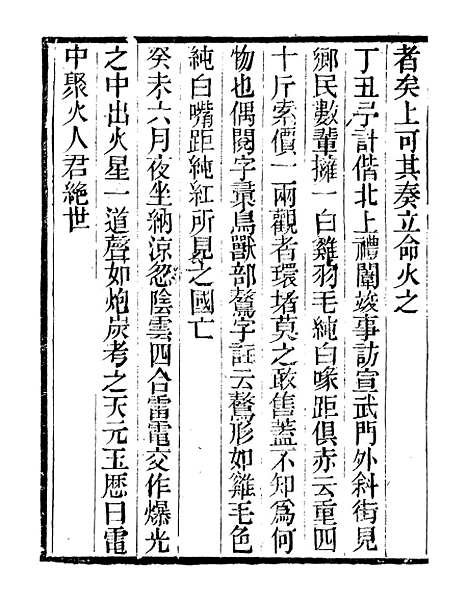 者矣上可其奏立命火之
丁丑予計偕北上禮闈竣事訪宣武門外斜街見
鄉民數輩擁一白雞羽毛純白喙距俱赤云重四
十斤索價一兩觀者環堵莫之敢售蓋不知爲何
物也偶閱字彚鳥獸部鶩字註云鶩形如雞毛色
純白嘴距純紅所見之國亡
癸未六月夜坐納涼忽陰雲四合雷電交作爆光
之中出火星一道聲如炮炭考之天元玉厯曰電
中聚火人君絶世